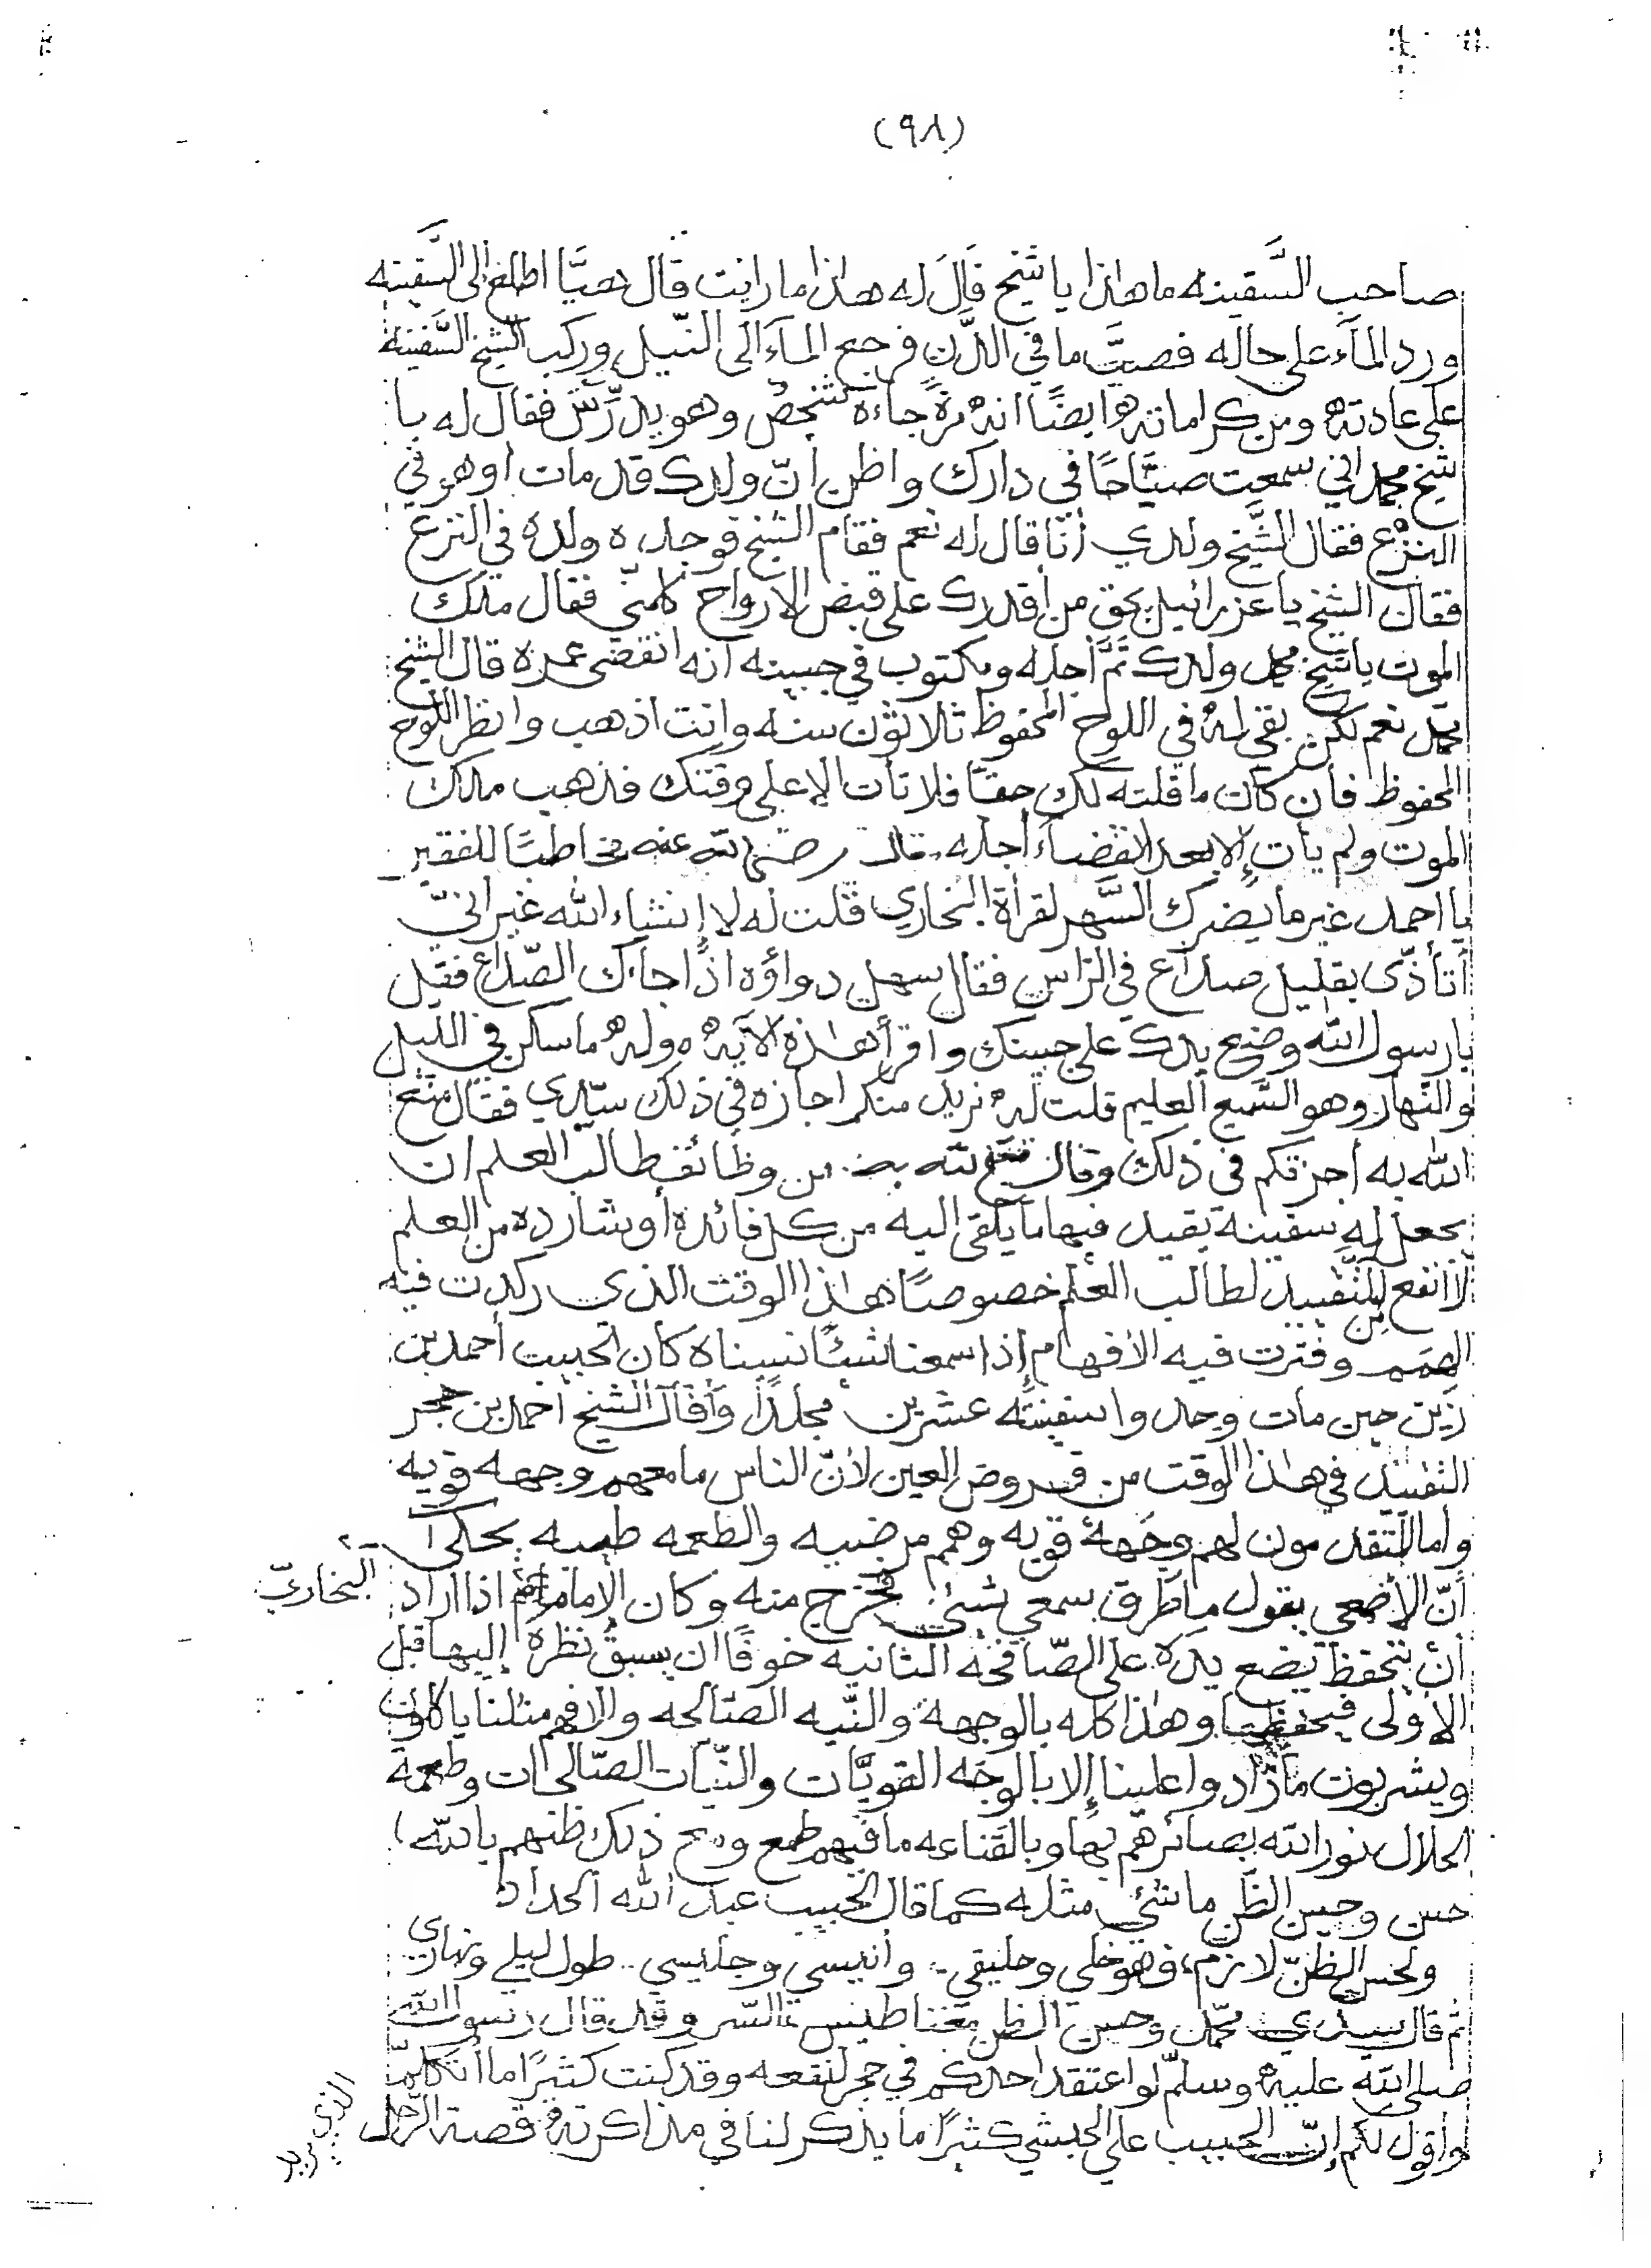 (٩٨)
صاحب السَّفينه ما هاذا يا شيخ قال له هاذا ما رايت قال هيَّا اطلع الى السَّفينه
ورد المآء على حاله فصبَّ ما في الدَّن فرجع المآء الى النّيل وركب الشيخ السَّفينة
على عادته ومن كراماته ايضًا انه مرةً جاءه شخصٌ وهو يدرِّس فقال له يا
شيخ محمد اني سمعت صيَّاحًا في دارك واظن انّ ولدك قد مات او هو في
النزْع فقال الشَّيخ ولدي أنا قال له نعم فقام الشيخ فوجده ولده في النزع
فقال الشيخ يا عزرائيل بحق من أقدرك على قبض الارواح كلمني فقال ملك
الموت يا شيخ محمد ولدك تمَّ أجله ومكتوب في جبينه انه انقضى عمره قال الشيخ
محمد نعم لكن بقي له في اللوح المحفوظ ثلاثون سنه وانت اذهب وانظر اللوح
المحفوظ فأن كان ما قلته لك حقًا فلا تأت إلا على وقتك فذهب مالك
الموت ولم يأت إلا بعد انقضاء أجله، قال رضي الله عنه مخاطبًا للفقير
يا احمد غير ما يضرك السَّهر لقرأة البخاري قلت له لا إنشاء الله غير انّي
أتأذّى بقليل صداع في الرّاس فقال سهل دواؤه اذا جاءك الصّداع فقل
يا رسول الله وضع يدك على جبينك واقرأ هاذه الآيه وله ما سكن في الليل
والنّهار وهو السَّميع العليم قلت له نريد منكم اجازه في ذلك سيّدي فقال متع
الله به أجزتكم في ذلك وقال متع الله به من وظائف طالب العلم ان
يجعل له سفينة يقيد فيها ما يلقى اليه من كل فائدة أو شارده من العلم
لا انفع من التّقييد لطالب العلم خصوصًا هاذا الوقت الذي ركدت فيه
الهمم وفترت فيه الأفهام إذا سمعنا شيئًا نسيناه كان الحبيب أحمد بن
زَين حين مات وجدوا سفينتَه عشرين مجلدًا وقال الشيخ احمد بن حجر
التقييد في هاذا الوقت من فروض العين لأنّ الناس ما معهم وجهه قويه
وأما المتقدمون لهم وجَهة قويه وهمم مرضيه والطعمه طيبه يحكى
أنّ الأصمعي يقول ما طرق سمعي شيئ فخرج منه وكان الإمام البخاريّ اذا اراد
أن يتحفظ يضع يده على الصّافحه الثانيه خوفًا ان يسبق نظره إليها قبل
الأولى فيحفظها وهاذا كله بالوجهة والنّيه الصّالحه والا فهم مثلنا ياكلون
ويشربون ما زادوا علينا إلا بالوجَه القويَّات والنّيّات الصّالحات وطعمة
الحلال نور الله بصائرهم بها وبالقَناعه ما فيهم طمع ومع ذلك ظنهم بالله
حسن وحسن الظَّن ما شئ مثله كما قال الحبيب عبد الله الحداد
ولحسن الظنّ لازم، فهو خلي وحليفي، وأنيسي وجليسي .. طول ليلي ونهاري
ثم قال سيدي محمّد وحسن الظن مغناطيس السّر وقد قال رسول الله
صلى الله عليه وسلّم لو اعتقد احدكم في حجر لنفعه وقد كنت كثيرًا ما أتكلم
واقول لكم إنّ الحبيب علي الحبشي كثيرًا ما يذكر لنا في مذاكرته قصة الرّجل
الذي يريد